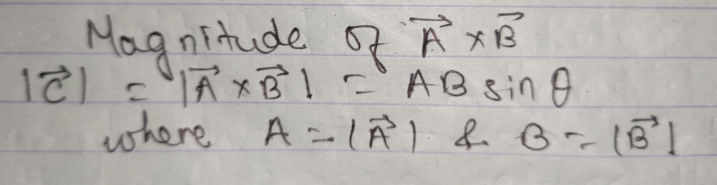 Magnitude of A⃗ × B⃗
|C⃗| = |A⃗ × B⃗| = AB sin θ
where A = |A⃗| & B = |B⃗|